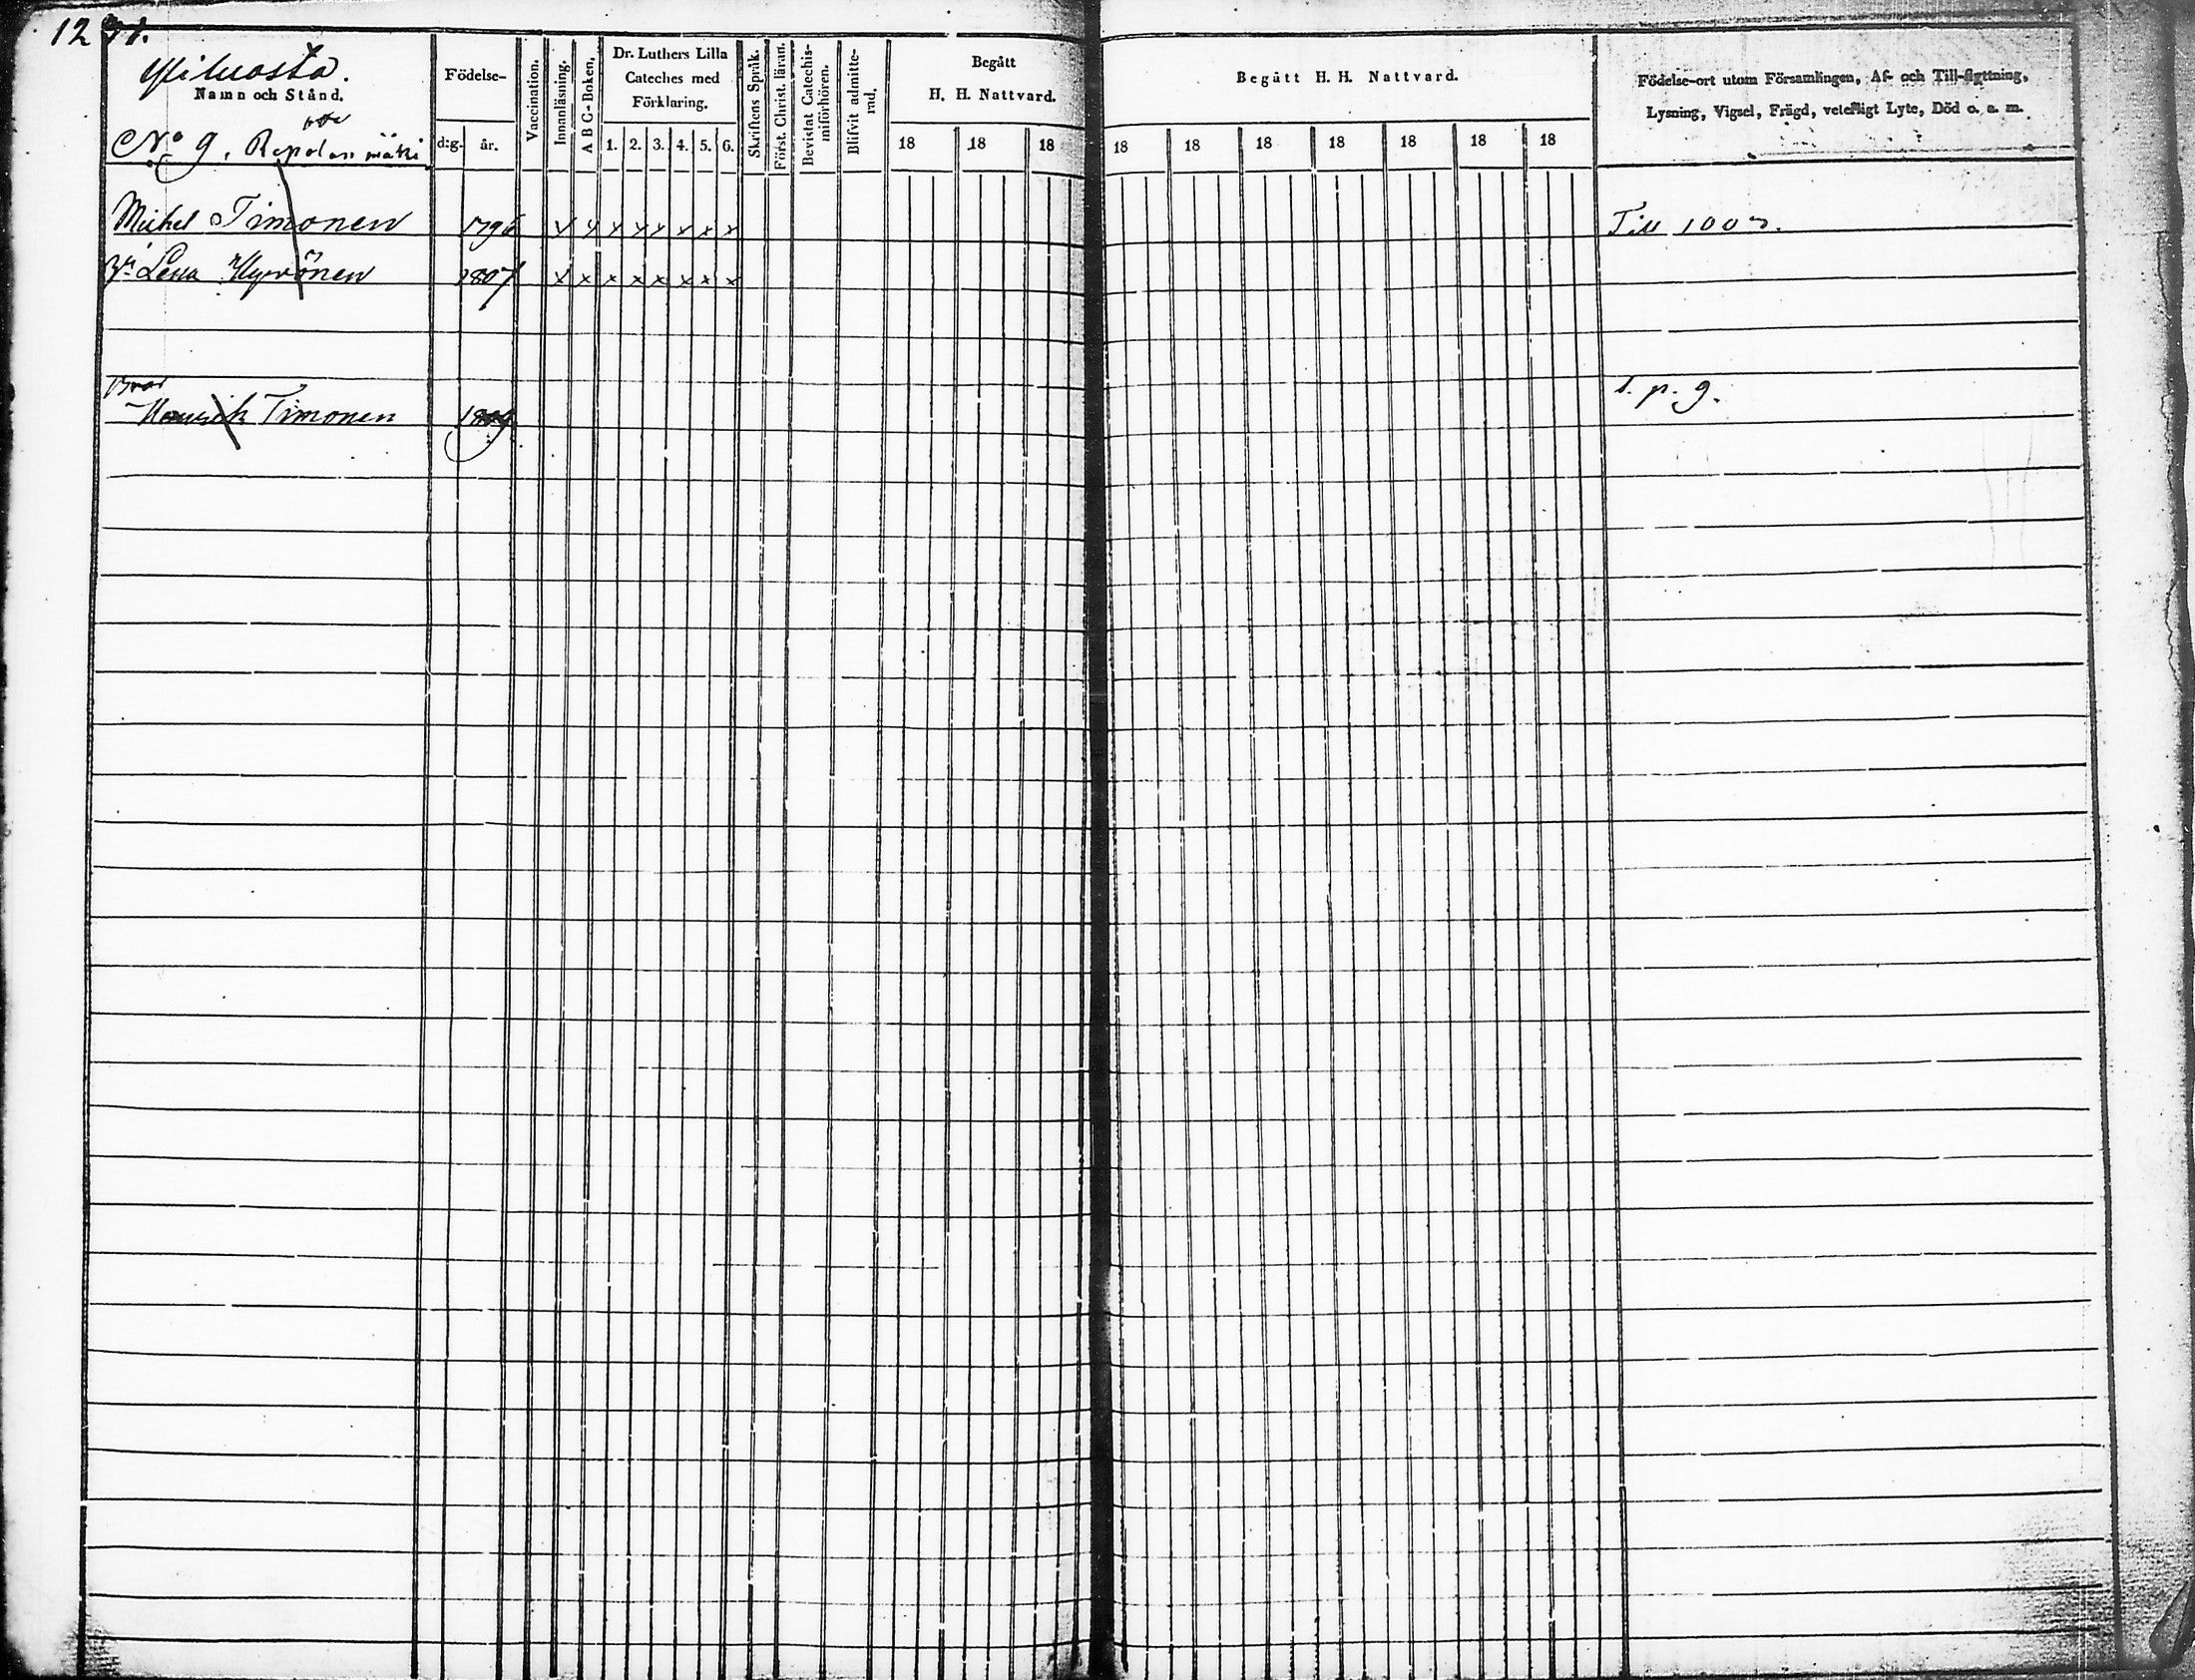 Namn och Stånd.
No 9.
Födelse-
d:g. år.
Vaccination.
Innanläsning.
A B C-Boken,
Dr. Luthers Lilla
Cateches med
Förklaring.
1. 2. 3. 4. 5. 6.
Skriftens Språk.
Först. Christ. läran.
Bevistat Catechis-
miförhören.
Blifvit admitte-
rad.
Begått
H. H. Nattvard.
18 18 18
Begått H. H. Nattvard.
18 18 18 18 18 18 18
Födelse-ort utom Församlingen, Af- och Till-flyttning,
Lysning, Vigsel, Frägd, vetefligt Lyte, Död o. a. m.
Michel Timonen 1796 x x x x x x x x Till
Lena 1807 x x x x x x x x
Bror
Henrik Timonen
p. 9.